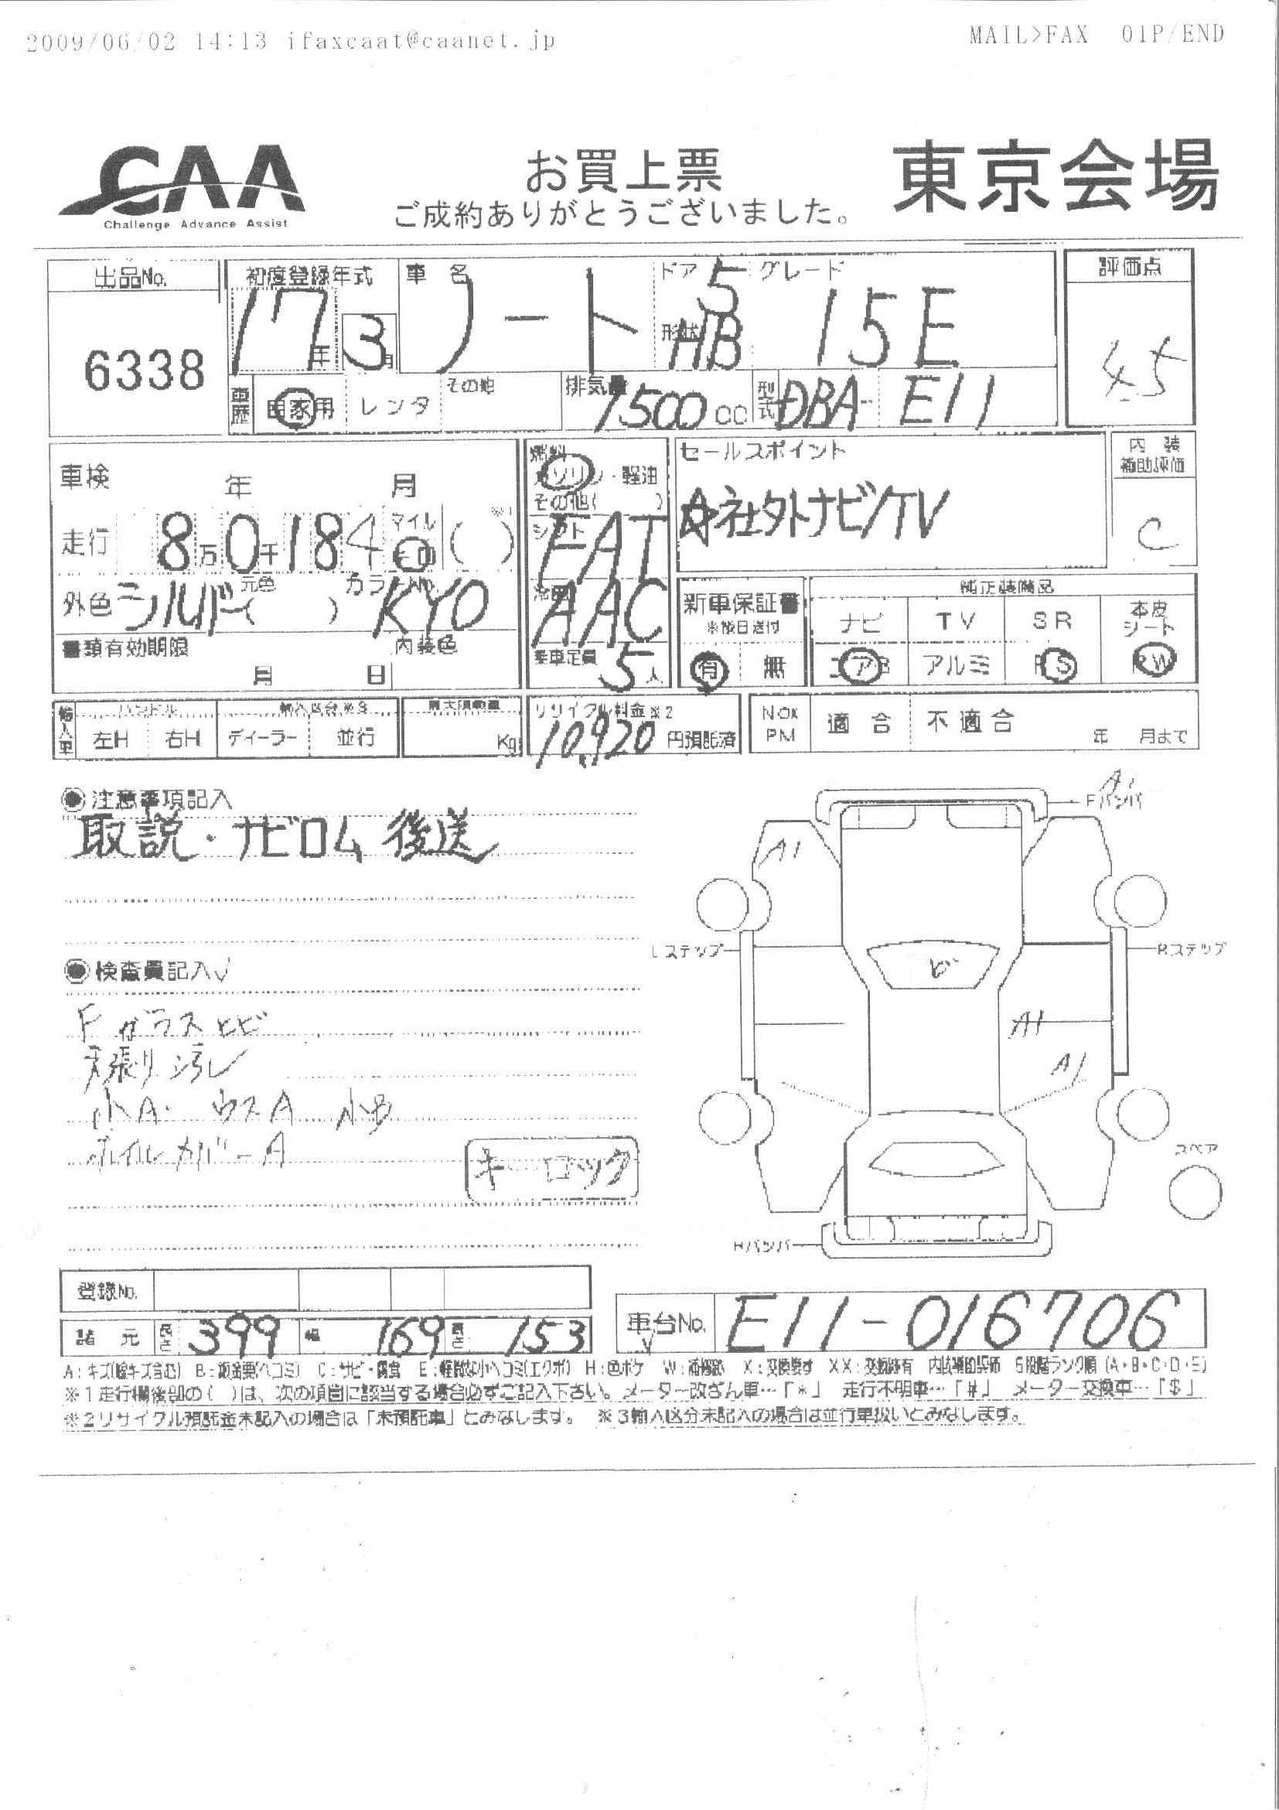 2009/06/02 14:13 ifaxcaat@caanet.jp MAIL>FAX 01P/END
CAA
Challenge Advance Assist
お買上票
ご成約ありがとうございました。
東京会場
出品No. 6338
初度登録年式 17年 3月
車名 ノート
ドア 5
形状 HB
グレード 15E
評価点 4.5
車歴 自家用 レンタ その他
排気量 1500cc
型式 DBA- E11
車検 年 月
走行 8万0千184 マイル キロ ( ) ※1
外色 シルバー 元色( ) カラーNo. KY0
書類有効期限 月 日
内装色
燃料 ガソリン・軽油
その他( )
シフト FAT
冷房 AAC
乗車定員 5人
セールスポイント
☆社外ナビ/TV
内装
補助評価 C
新車保証書
※後日送付
有 無
純正装備品
ナビ TV SR 本皮シート
エアB アルミ PS PW
輸入車 ハンドル 左H 右H
輸入区分※3 ディーラー 並行
最大積載量 Kg
リサイクル料金※2
10,920 円預託済
NOx
PM
適合 不適合 年 月まで
◉注意事項記入
取説・ナビロム後送
◉検査員記入
Fガラスヒビ
天張り汚レ
小A ウスA 小B
ホイルカバーA
キーロック
A1 Fバンパ
A1
Lステップ Rステップ
ビ
A1
A1
スペア
Rバンパ
登録No.
諸元 長さ 399 幅 169 高さ 153
車台No. E11-016706
A:キズ(線キズ含む) B:鈑金要(ヘコミ) C:サビ・腐食 E:軽微な小ヘコミ(エクボ) H:色ボケ W:補修跡 X:交換要す XX:交換跡有 内装補助評価 5段階ランク順(A・B・C・D・E)
※1走行欄後部の( )は、次の項目に該当する場合必ずご記入下さい。メーター改ざん車…「*」 走行不明車…「#」 メーター交換車…「$」
※2リサイクル預託金未記入の場合は「未預託車」とみなします。 ※3輸入区分未記入の場合は並行車扱いとみなします。